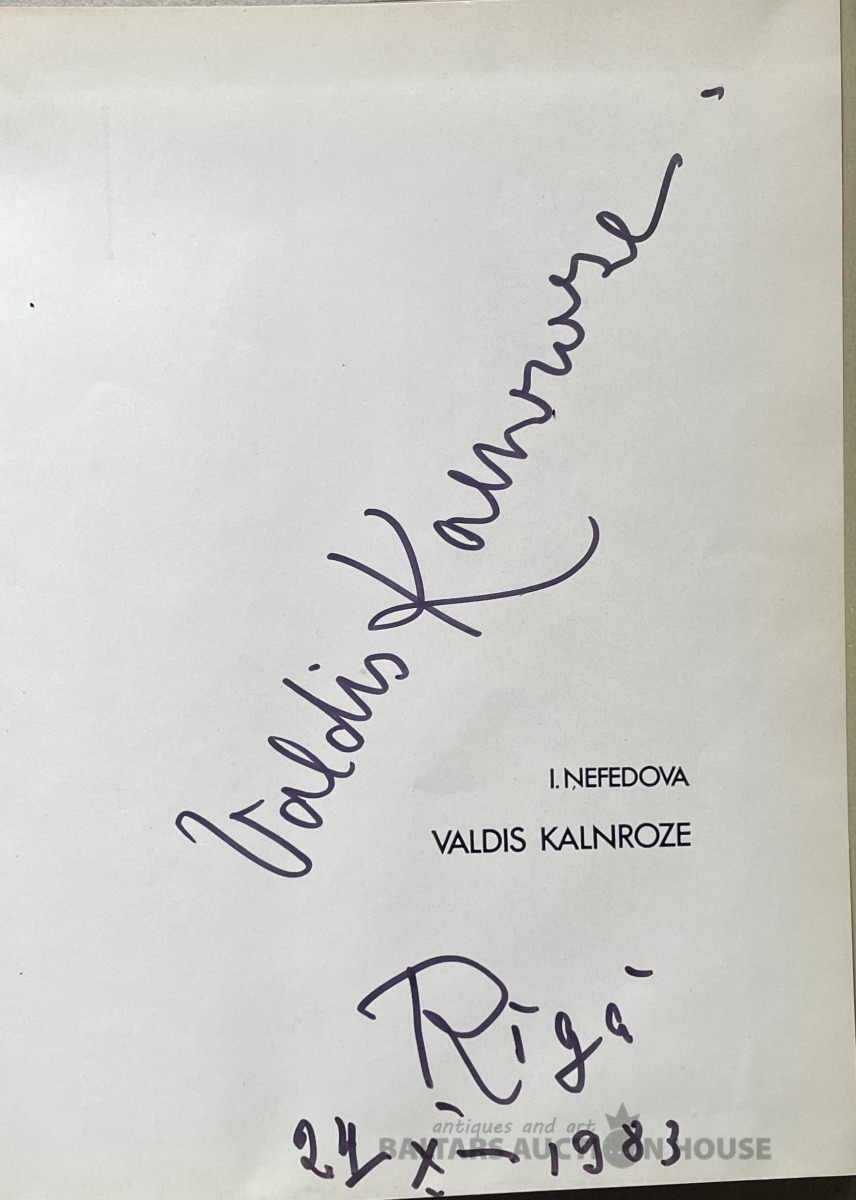 Valdis Kalnroze
I. ŅEFEDOVA
VALDIS KALNROZE
Rīgā
24 X 1983
antiques and art
BALTARS AUCTION HOUSE